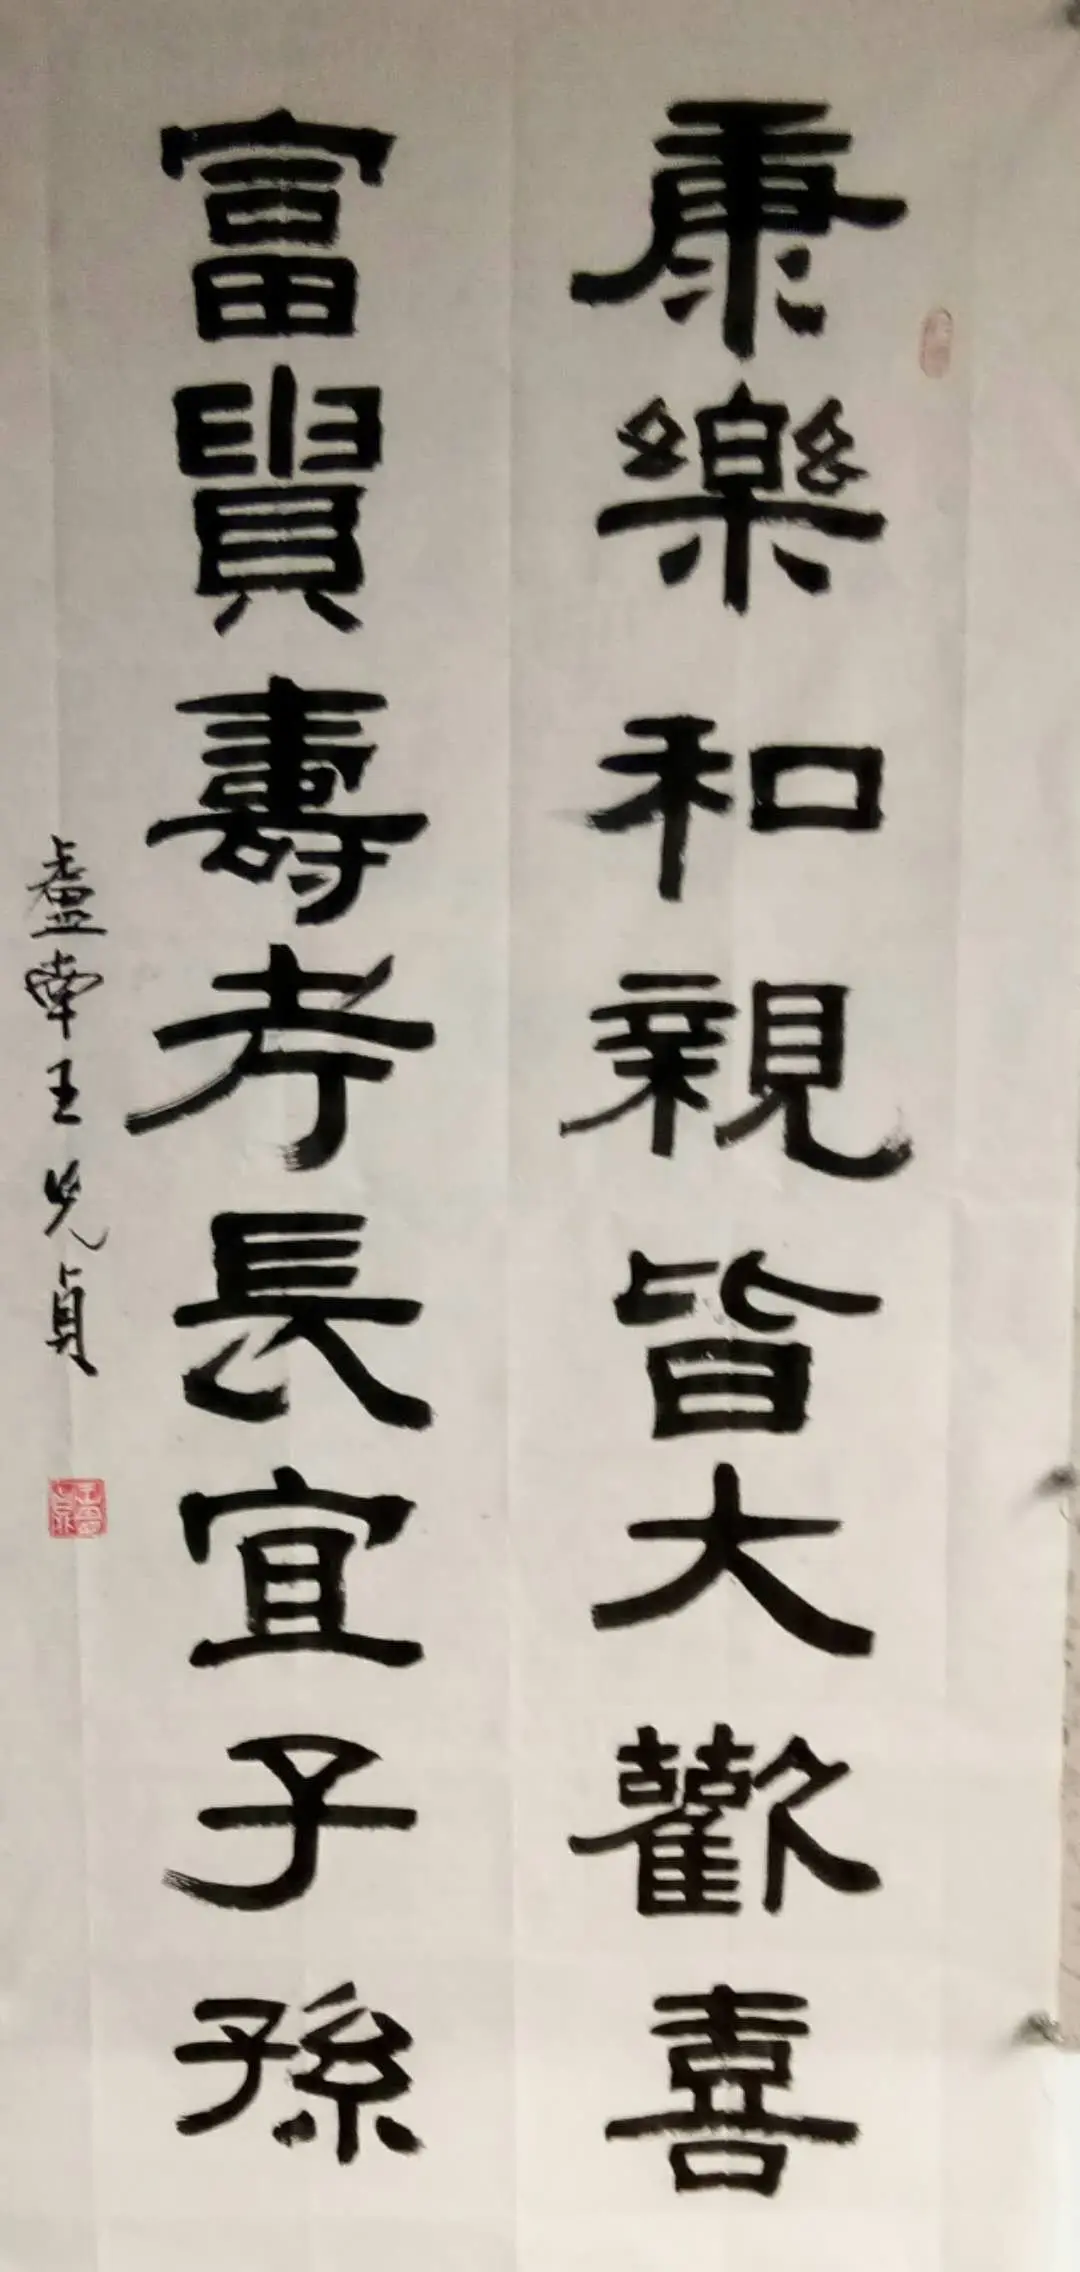 康樂和親皆大歡喜
富貴壽考長宜子孫
盧率王光貞